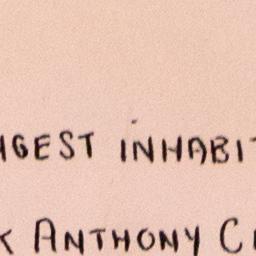 NGEST INHABIT
K ANTHONY C